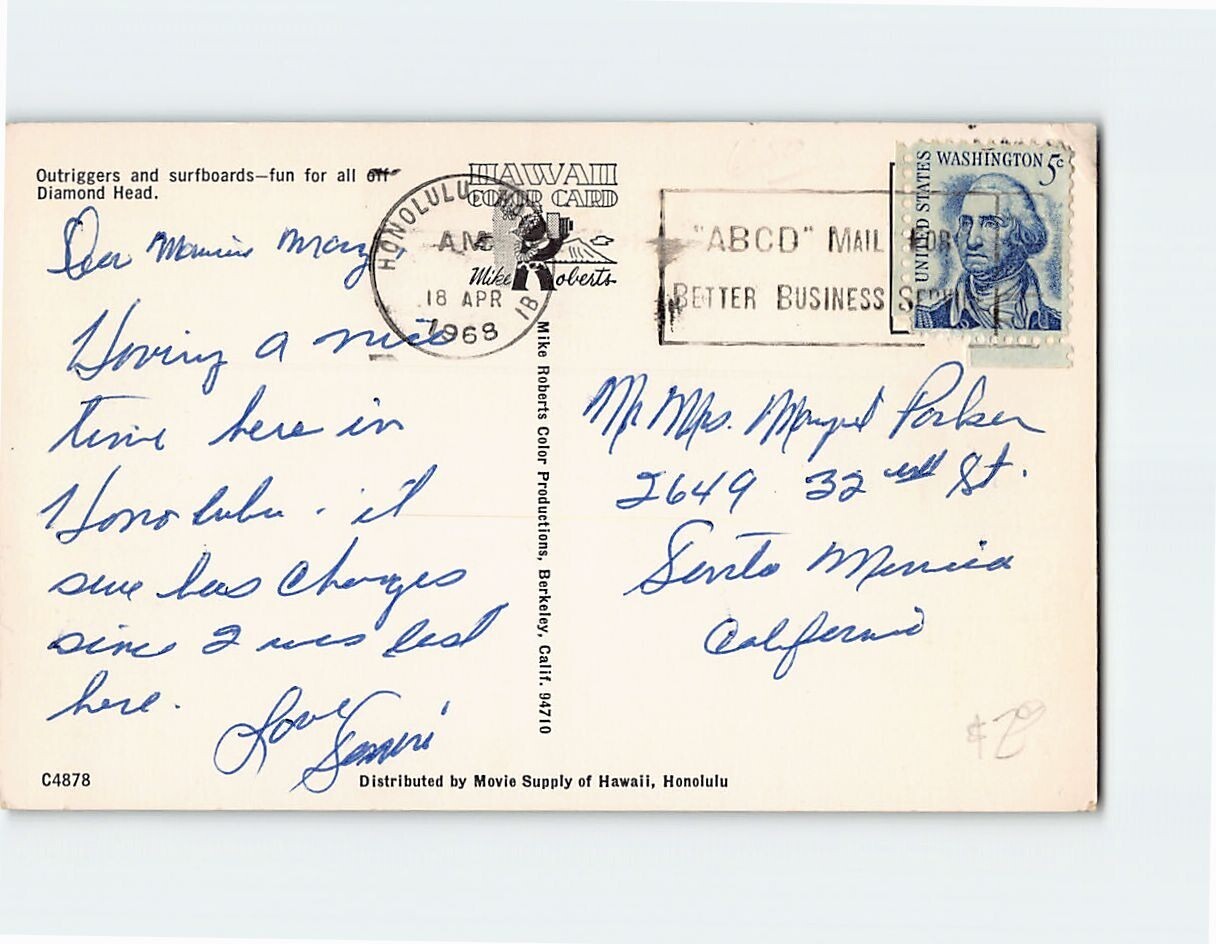 Outriggers and surfboards—fun for all off
Diamond Head.
HAWAII
COLOR CARD
Mike Roberts
HONOLULU
AM
18 APR
1968
"ABCD" MAIL FOR
BETTER BUSINESS SERVICE
UNITED STATES
WASHINGTON 5c
Dear
Having a nice
time here in
Honolulu. it
sure has changes
since I was last
here.
Love
Mike Roberts Color Productions, Berkeley, Calif. 94710
Mr Mrs. Parker
2649 32 St.
Santa Monica
California
C4878
Distributed by Movie Supply of Hawaii, Honolulu